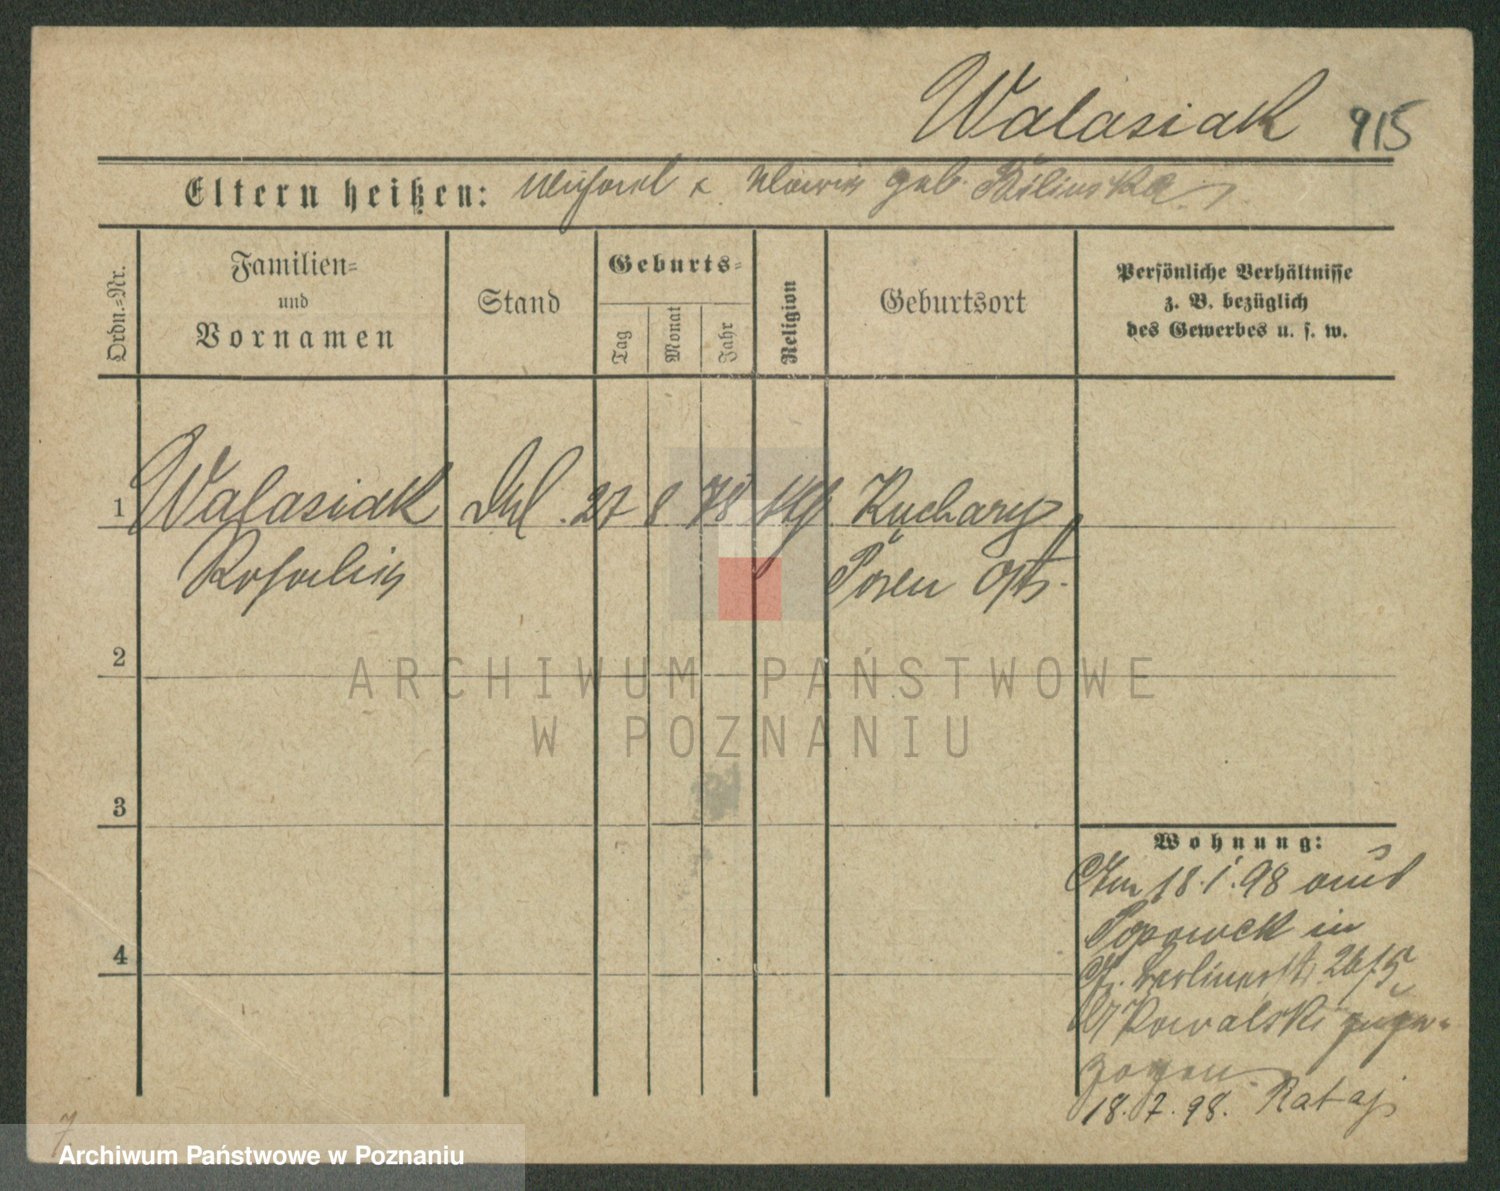 Walasiak 915
Eltern heißen: Michael & Marie geb. Bilinska
Ordn.=Nr.
Familien=
und
Vornamen
Stand
Geburts=
Tag
Monat
Jahr
Religion
Geburtsort
Persönliche Verhältnisse
z. B. bezüglich
des Gewerbes u. s. w.
1 Walasiak 27 8 78 Kuchary
Rosalie Posen Ost.
2
ARCHIWUM PAŃSTWOWE
W POZNANIU
3
Wohnung:
18.1.98 aus
Popowek in
Berlinerstr.
Kowalski zuge=
4
zogen
18.7.98. Rataj
7
Archiwum Państwowe w Poznaniu